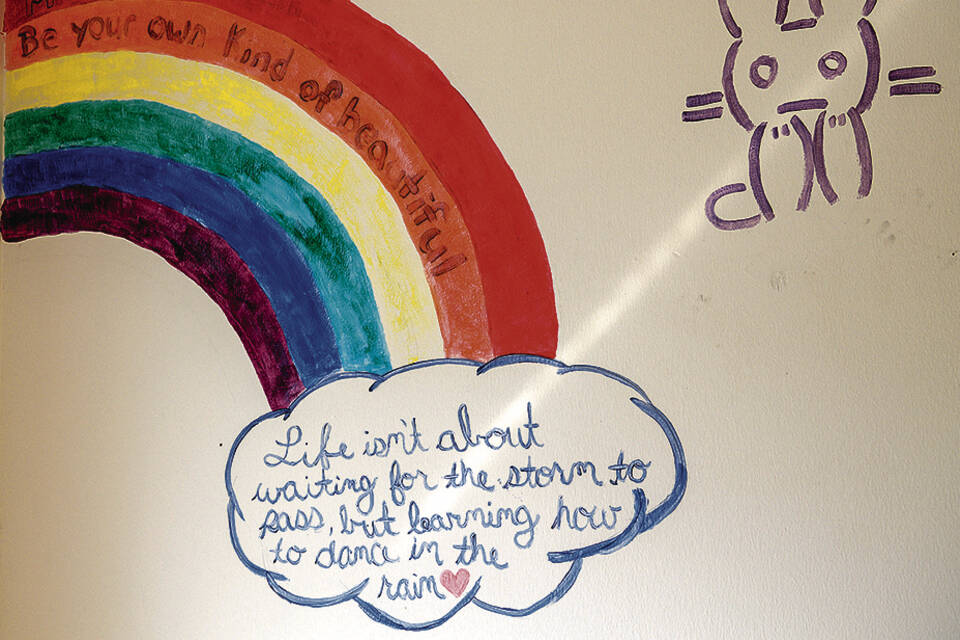 Be your own Kind of beautiful
Life isn't about
waiting for the storm to
pass, but learning how
to dance in the
rain